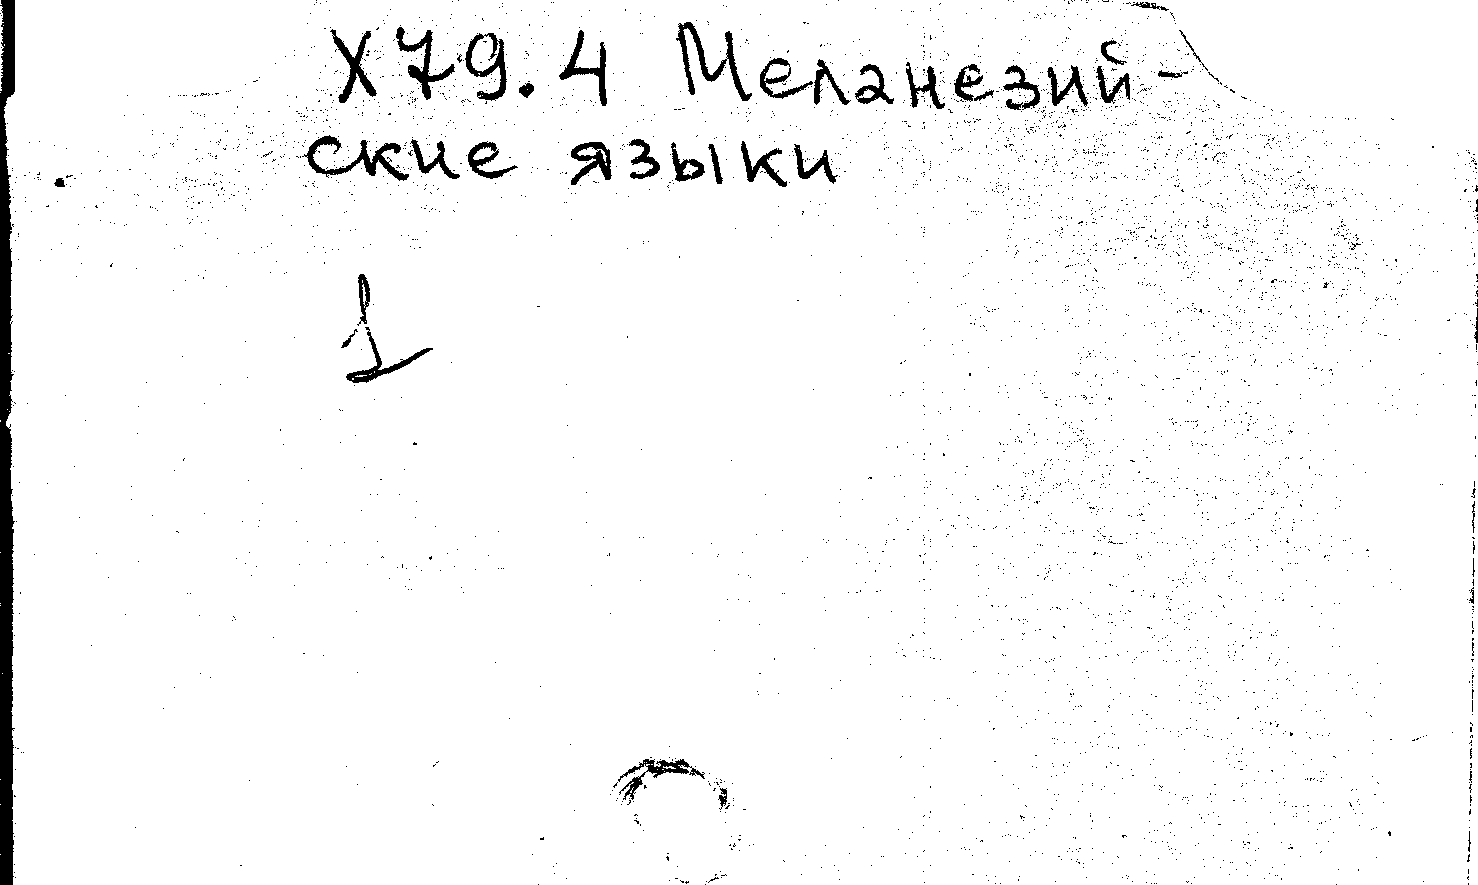 Х79.4 Меланезий-
ские языки
1